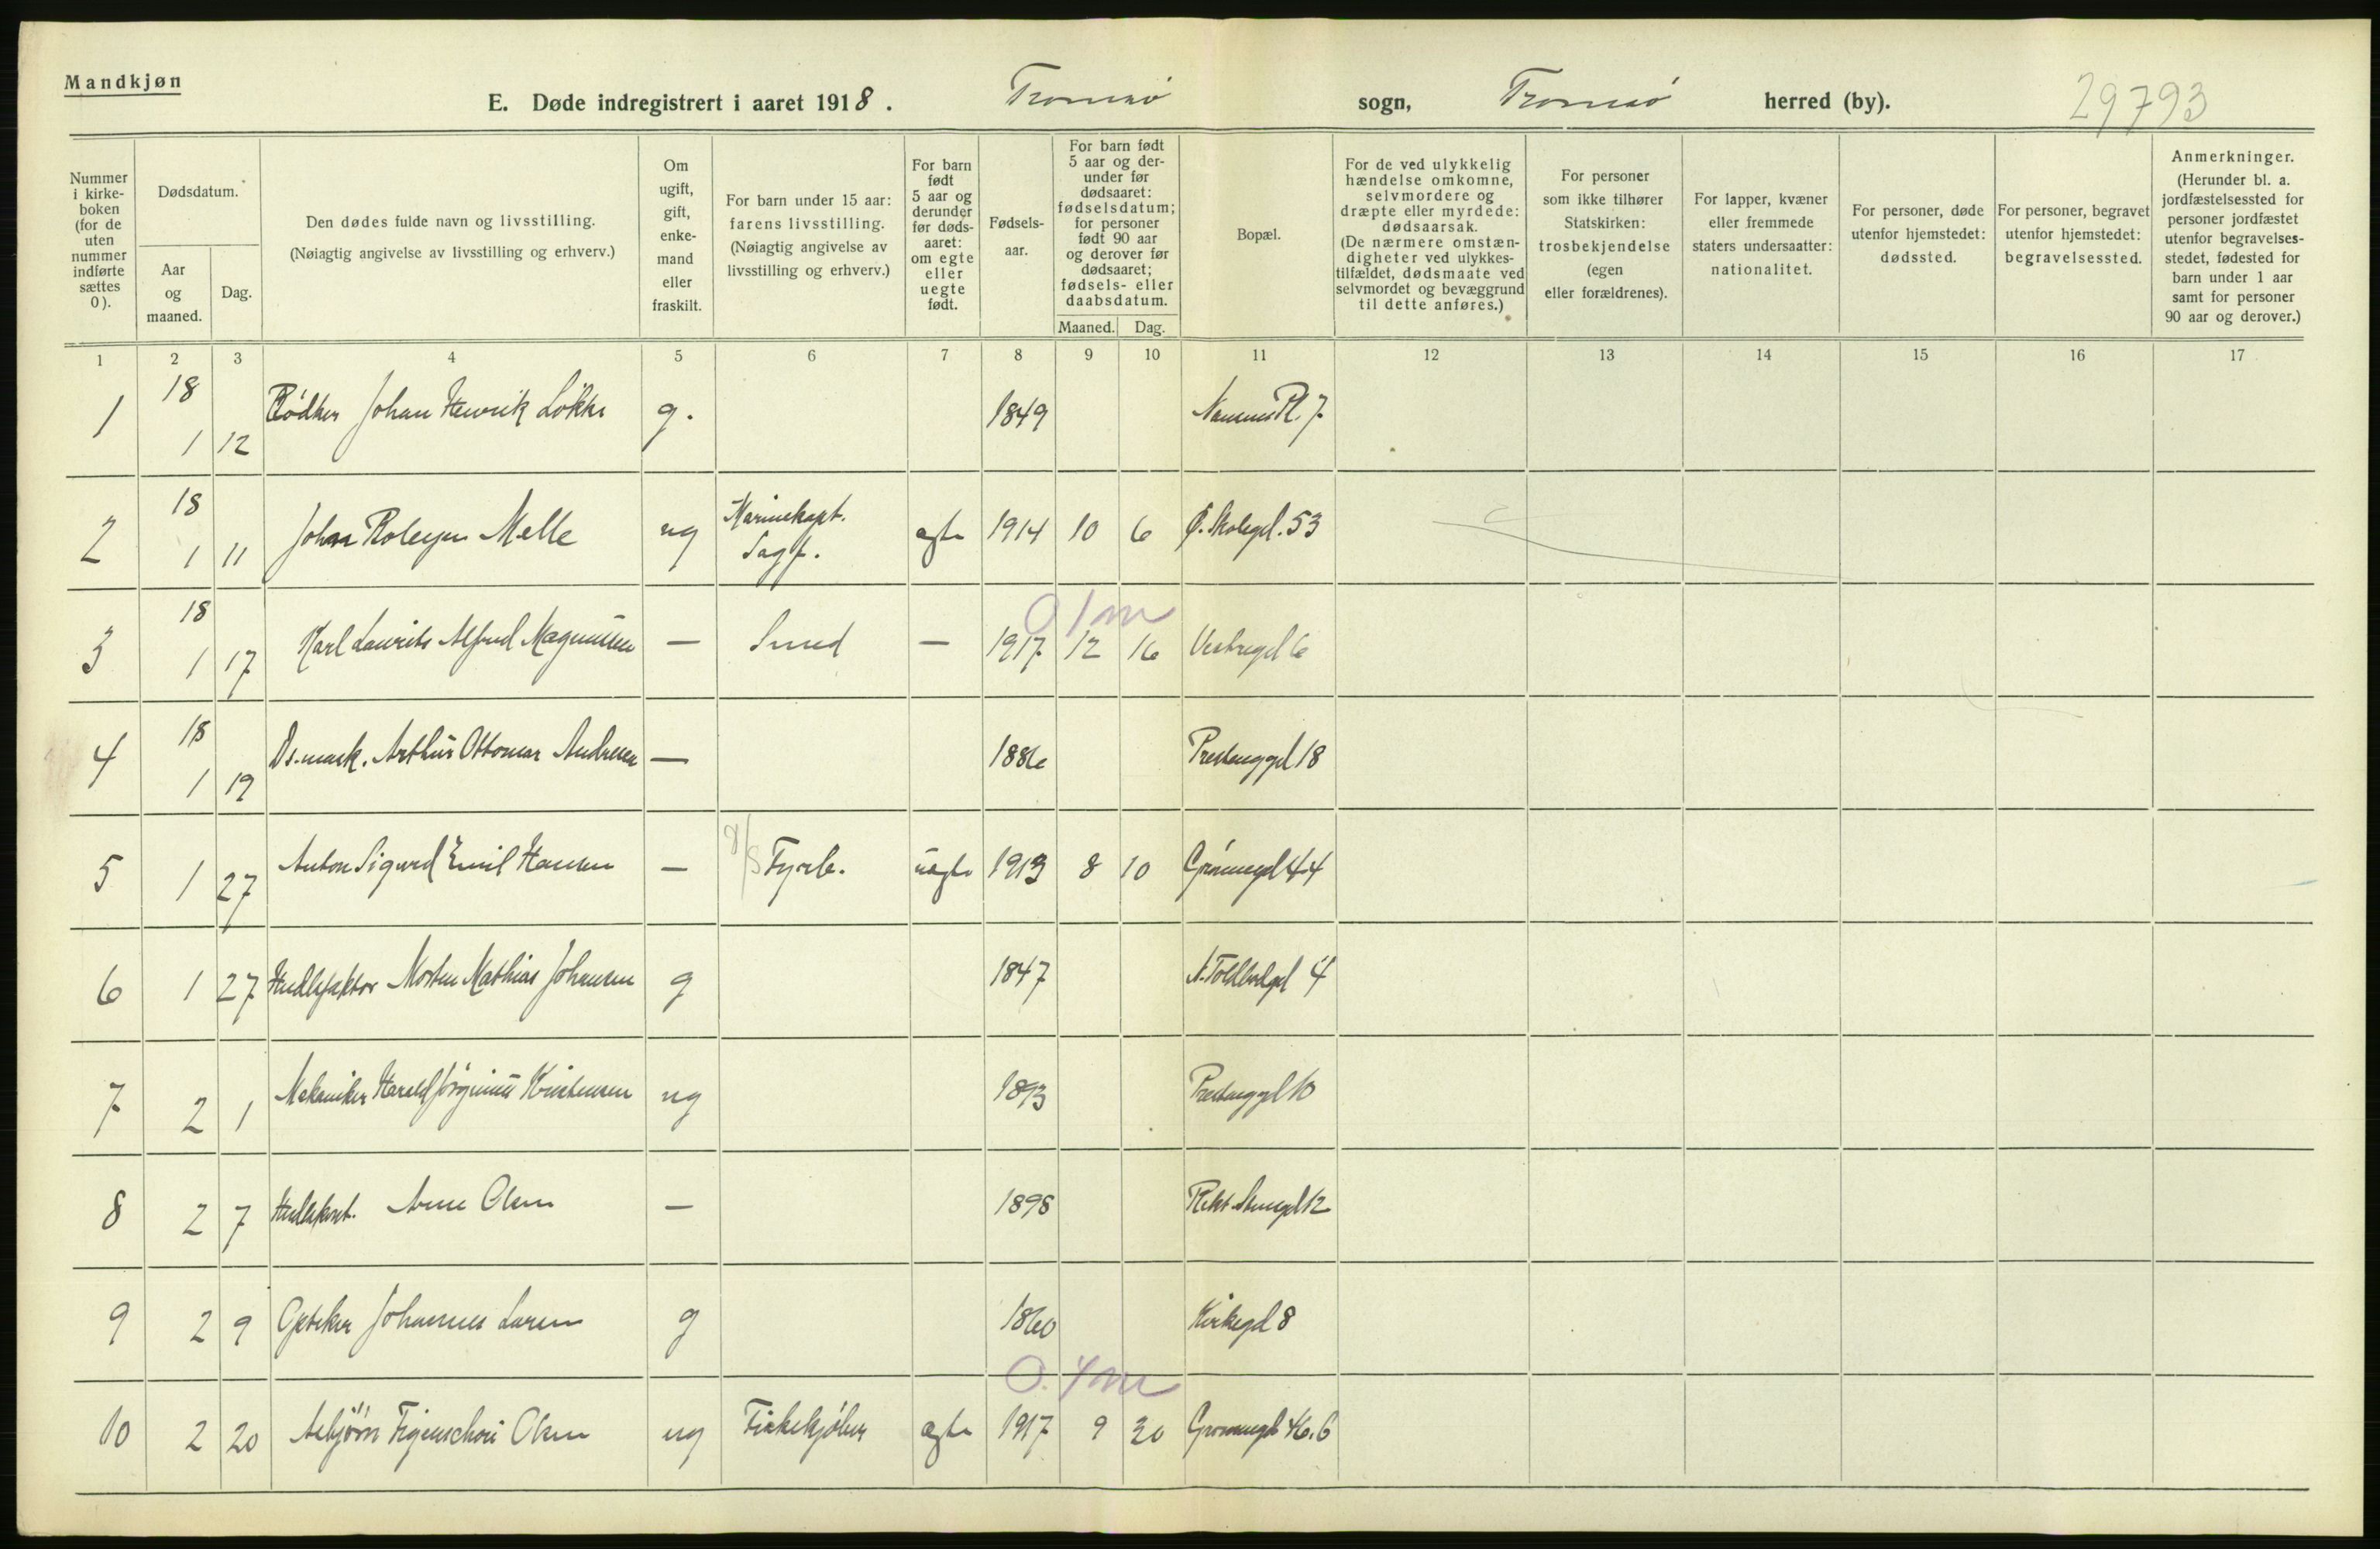 Mandkjøn
E. Døde indregistrert i aaret 1918. Tromsø sogn, Tromsø herred (by). 29793
Nummer i kirkeboken (for de uten nummer indførte sættes 0).
Dødsdatum.
Aar og maaned.
Dag.
Den dødes fulde navn og livsstilling.
(Nøiagtig angivelse av livsstilling og erhverv.)
Om ugift, gift, enkemand eller fraskilt.
For barn under 15 aar: farens livsstilling.
(Nøiagtig angivelse av livsstilling og erhverv.)
For barn født 5 aar og derunder før dødsaaret: om egte eller uegte født.
Fødselsaar.
For barn født 5 aar og derunder før dødsaaret: fødselsdatum; for personer født 90 aar og derover før dødsaaret; fødsels- eller daabsdatum.
Maaned. Dag.
Bopæl.
For de ved ulykkelig hændelse omkomne, selvmordere og dræpte eller myrdede: dødsaarsak.
(De nærmere omstændigheter ved ulykkestilfældet, dødsmaate ved selvmordet og bevæggrund til dette anføres.)
For personer som ikke tilhører Statskirken: trosbekjendelse (egen eller forældrenes).
For lapper, kvæner eller fremmede staters undersaatter: nationalitet.
For personer, døde utenfor hjemstedet: dødssted.
For personer, begravet utenfor hjemstedet: begravelsessted.
Anmerkninger.
(Herunder bl. a. jordfæstelsessted for personer jordfæstet utenfor begravelsesstedet, fødested for barn under 1 aar samt for personer 90 aar og derover.)
1 2 3 4 5 6 7 8 9 10 11 12 13 14 15 16 17
1 18 1 12 Bødker Johan Henrik Løkke g. 1849 Nansens Pl. 7
2 18 1 11 John Melle ug Marinekapt. Sagf. egte 1914 10 6 Ø. Skolegd. 53
0 1 m
3 18 1 17 Karl Laurits Alfred Magnussen — Smed — 1917 12 16 Vestregd 6
4 18 1 19 Arthur Ottomar Andresen — 1886 Prestenggd 18
5 1 27 Anton Sigurd Emil Hansen — Fyrb. uegte 1913 8 10 Grønnegd 44
6 1 27 Morten Mathias Johansen g 1847 N. Toldbodgd 4
7 2 1 Mekaniker Harald Jørginius Kristensen ug 1893 Prestenggd 10
8 2 7 Arne Olsen — 1898 12
9 2 9 Johannes Larsen g 1860 Kirkegd 8
0. 4 m
10 2 20 Asbjørn Figenschou Olsen ug egte 1917 9 20 Grønnegd 46.6